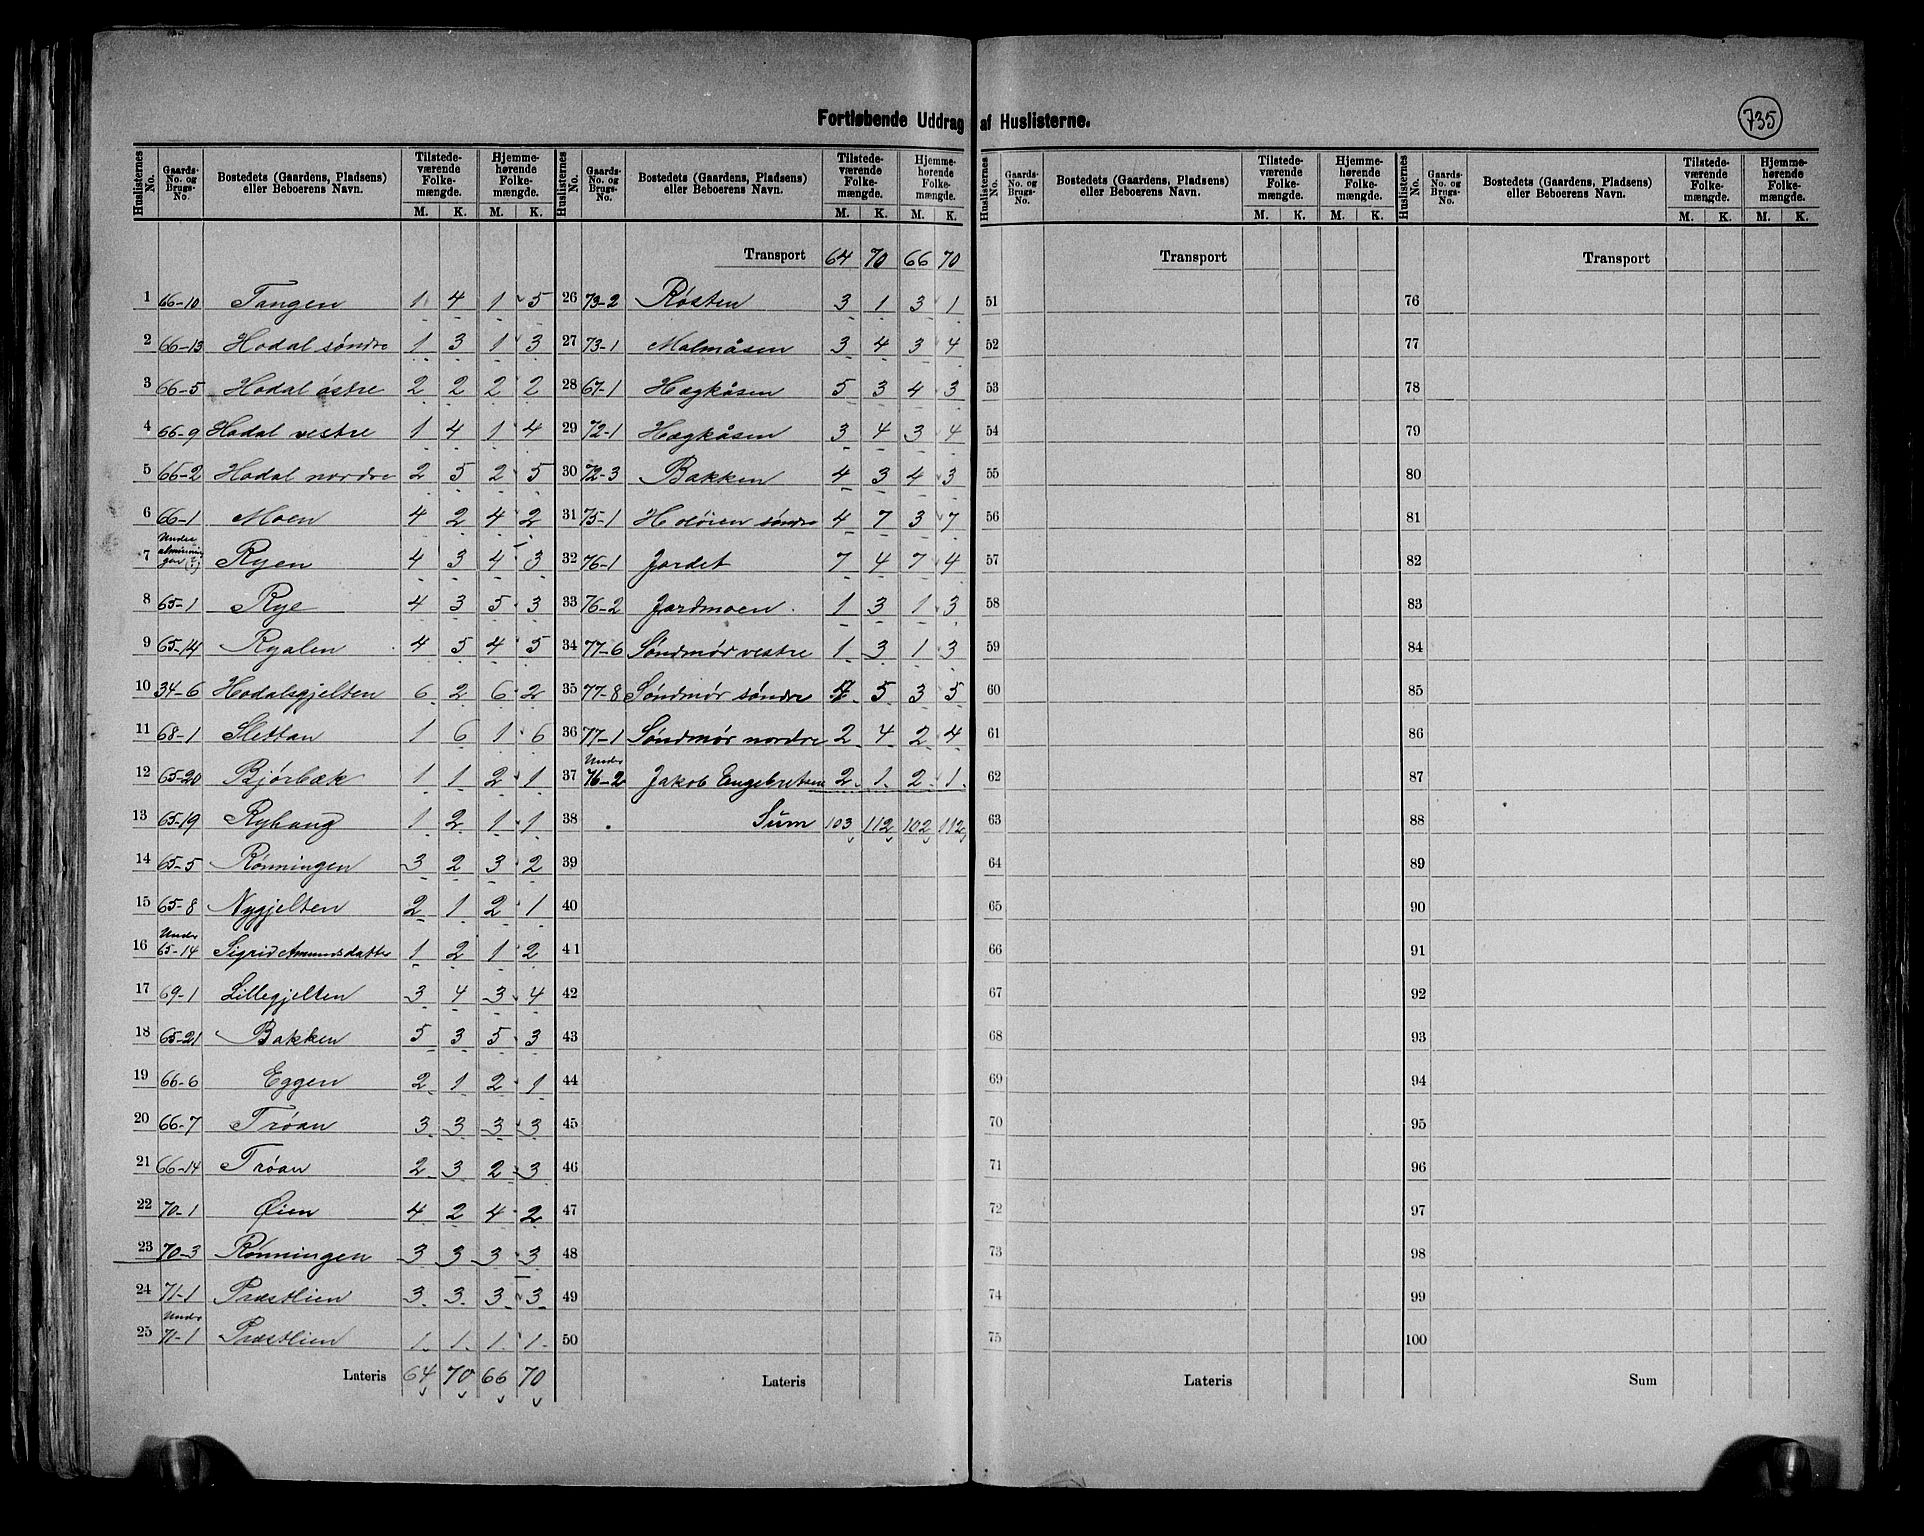 Fortløbende Uddrag af Huslisterne.
735
Huslisternes No. | Gaards-No. og Brugs-No. | Bostedets (Gaardens, Pladsens) eller Beboerens Navn. | Tilstedeværende Folkemængde. M. K. | Hjemmehørende Folkemængde. M. K.
1 66-10 Tangen 1 4 1 5
2 66-13 Hodal søndre 1 3 1 3
3 66-5 Hodal østre 2 2 2 2
4 66-9 Hodal vestre 1 4 1 4
5 66-2 Hodal nordre 2 5 2 5
6 66-1 Moen 4 2 4 2
7 Under Ryen 4 3 4 3
8 65-1 Rye 4 3 5 3
9 65-14 Ryalen 4 5 4 5
10 34-6 Hodalsgjelten 6 2 6 2
11 68-1 Slettan 1 6 1 6
12 65-20 Bjørbæk 1 1 2 1
13 65-19 Ryhaug 1 2 1 1
14 65-5 Rønningen 3 2 3 2
15 65-8 Nygjelten 2 1 2 1
16 Under 65-14 Sigrid Amundsdatter 1 2 1 2
17 69-1 Lillegjelten 3 4 3 4
18 65-21 Bakken 5 3 5 3
19 66-6 Eggen 2 1 2 1
20 66-7 Trøan 3 3 3 3
21 66-14 Trøan 2 3 2 3
22 70-1 Øien 4 2 4 2
23 70-3 Rønningen 3 3 3 3
24 71-1 Præstlien 3 3 3 3
25 Under 71-1 Præstlien 1 1 1 1
Lateris 64 70 66 70
Huslisternes No. | Gaards-No. og Brugs-No. | Bostedets (Gaardens, Pladsens) eller Beboerens Navn. | Tilstedeværende Folkemængde. M. K. | Hjemmehørende Folkemængde. M. K.
Transport 64 70 66 70
26 73-2 Røsten 3 1 3 1
27 73-1 Malmåsen 3 4 3 4
28 67-1 Hægkåsen 5 3 4 3
29 72-1 Hægkåsen 3 4 3 4
30 72-3 Bakken 4 3 4 3
31 75-1 Holøien søndre 4 7 3 7
32 76-1 Jordet 7 4 7 4
33 76-2 Jordmoen 1 3 1 3
34 77-6 Søndmør vestre 1 3 1 3
35 77-8 Søndmør søndre 4 5 3 5
36 77-1 Søndmør nordre 2 4 2 4
37 Under 76-2 Jakob Engebretsen 2 1 2 1
38 Sum 103 112 102 112
39
40
41
42
43
44
45
46
47
48
49
50
Lateris
Huslisternes No. | Gaards-No. og Brugs-No. | Bostedets (Gaardens, Pladsens) eller Beboerens Navn. | Tilstedeværende Folkemængde. M. K. | Hjemmehørende Folkemængde. M. K.
Transport
51
52
53
54
55
56
57
58
59
60
61
62
63
64
65
66
67
68
69
70
71
72
73
74
75
Lateris
Huslisternes No. | Gaards-No. og Brugs-No. | Bostedets (Gaardens, Pladsens) eller Beboerens Navn. | Tilstedeværende Folkemængde. M. K. | Hjemmehørende Folkemængde. M. K.
Transport
76
77
78
79
80
81
82
83
84
85
86
87
88
89
90
91
92
93
94
95
96
97
98
99
100
Sum